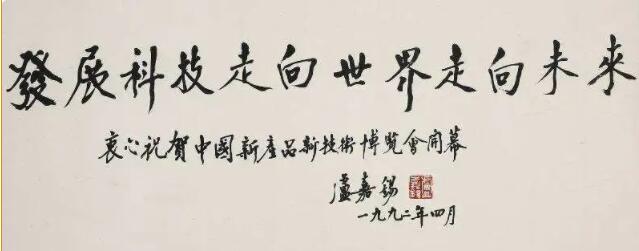 發展科技走向世界走向未來
衷心祝賀中國新產品新技術博覽會開幕
盧嘉錫
一九九二年四月